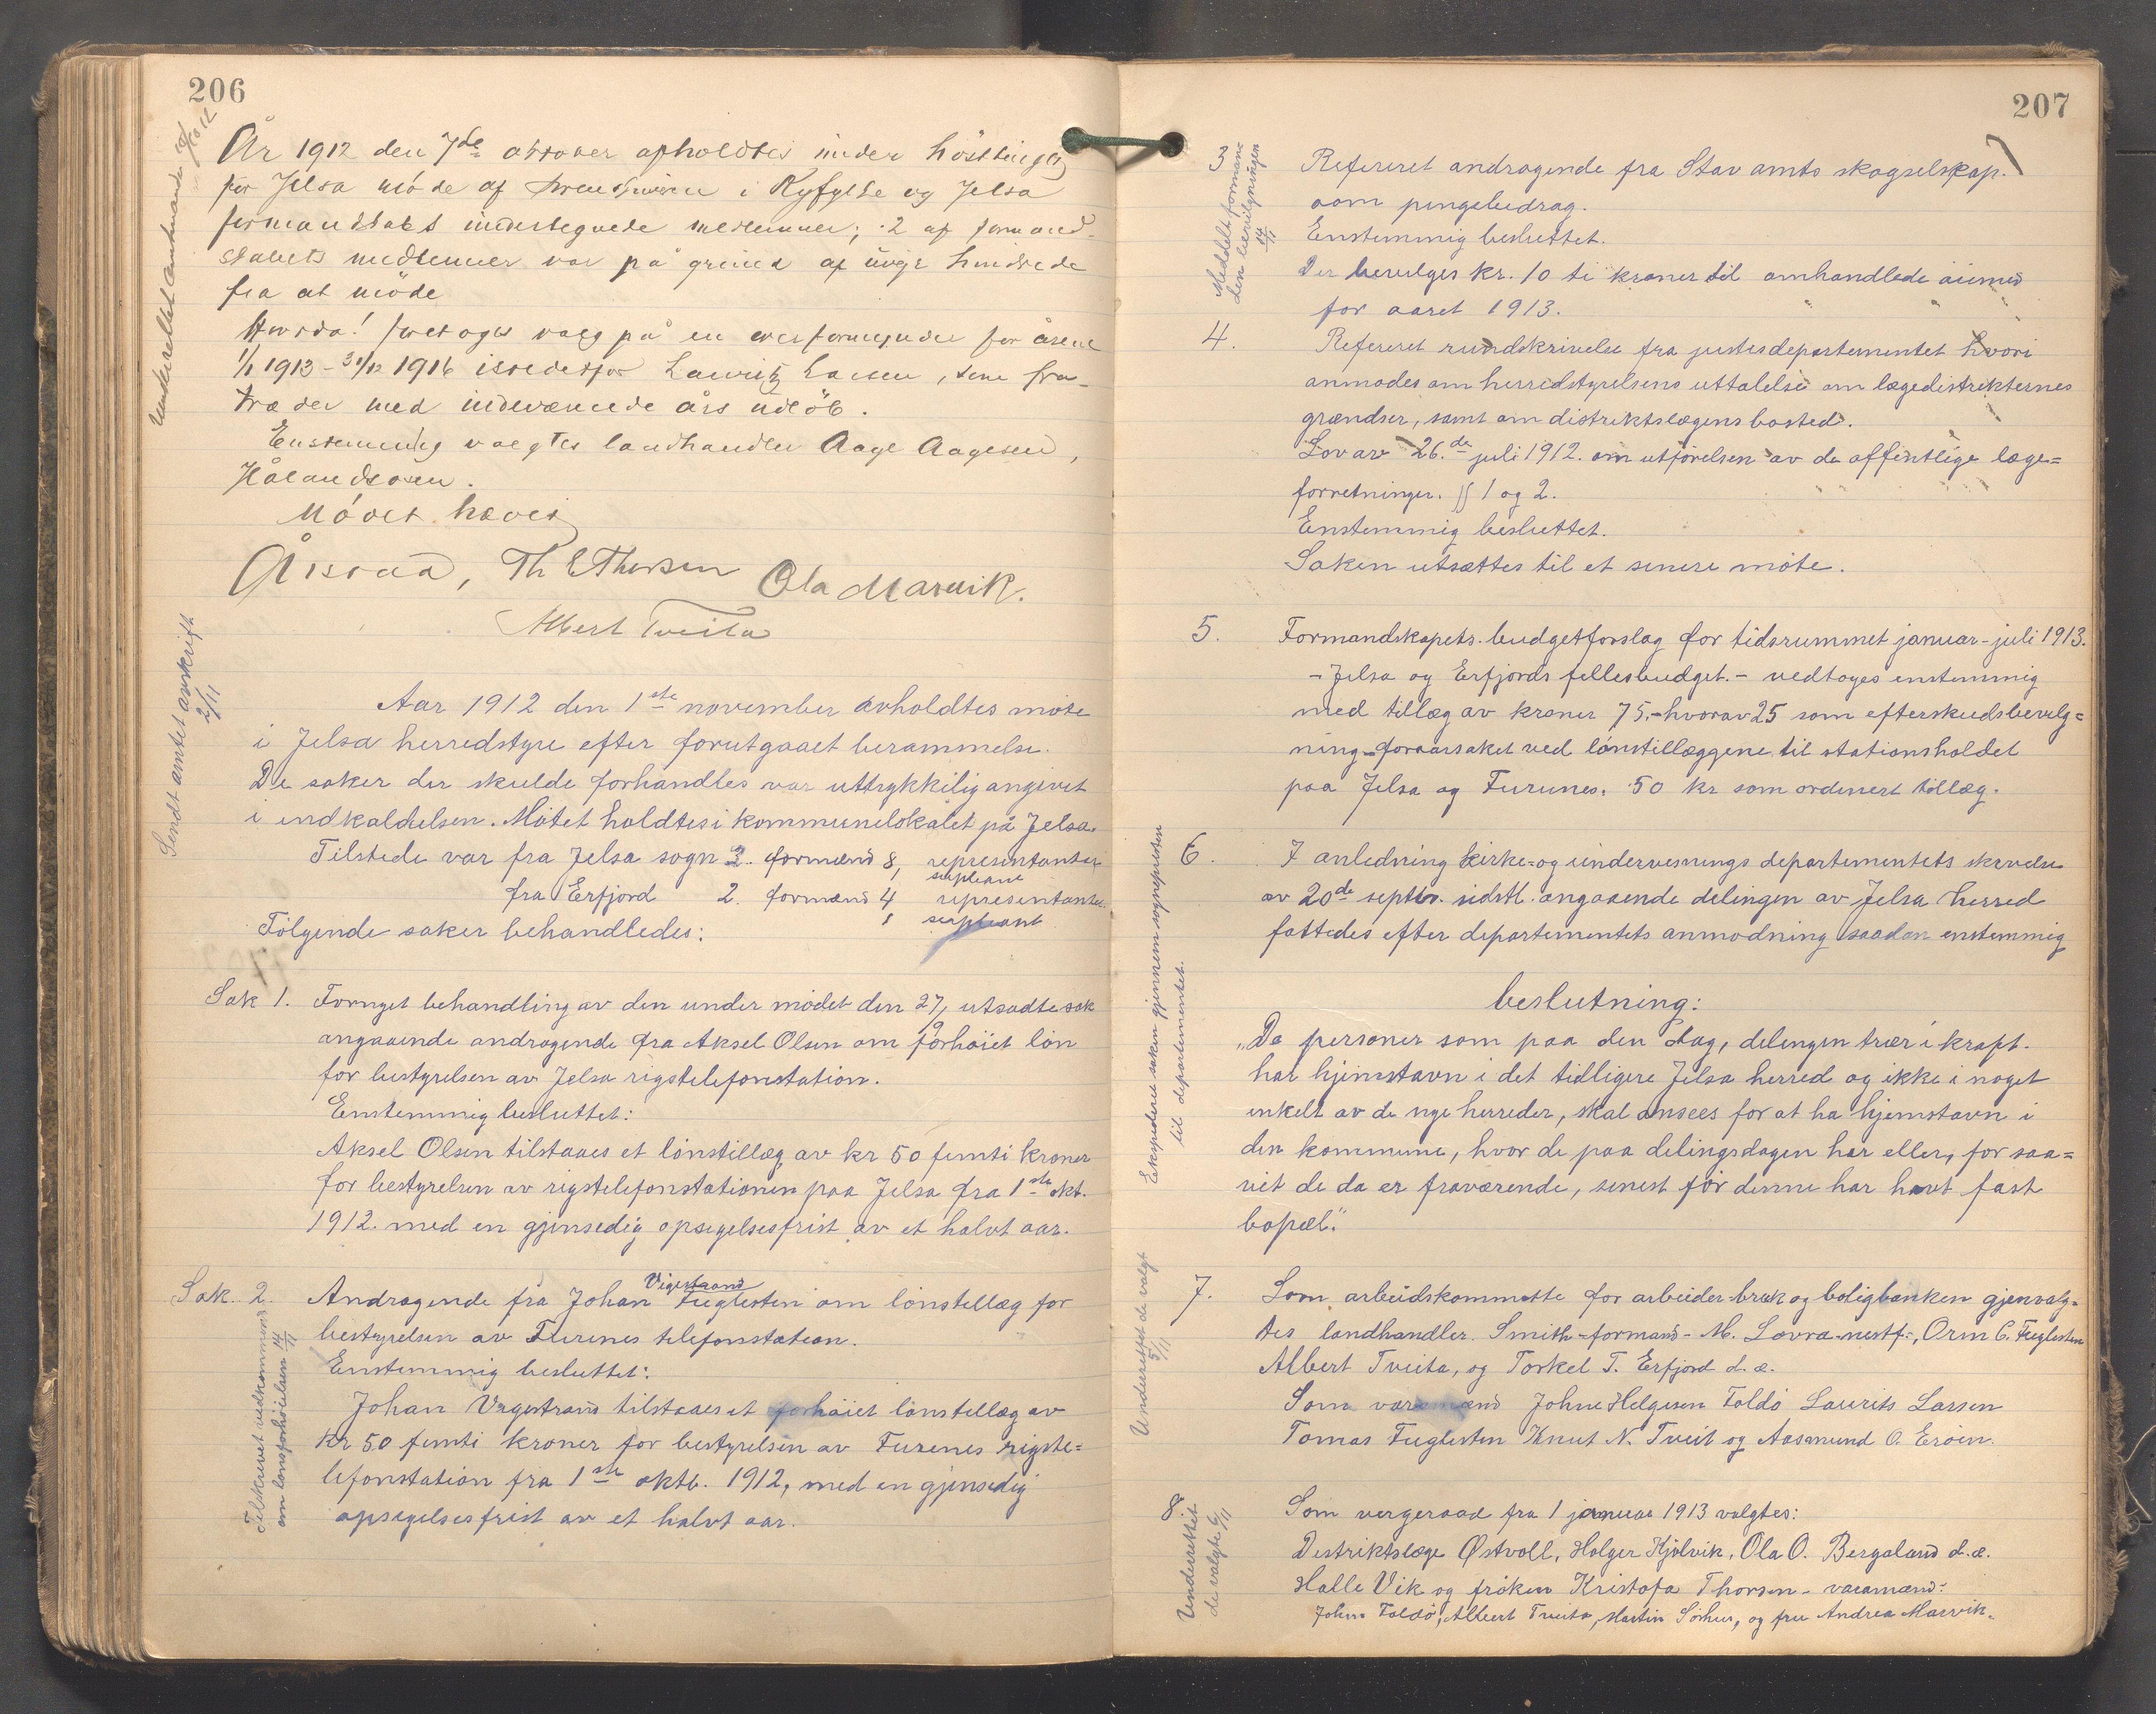 206
År 1912 den 7de oktober afholdtes under hösttinget
for Jelsa möde af i Ryfylke og Jelsa
formandskabs undertegnede medlemmer; 2 af formand-
skabets medlemmer var på grund af uveir hindrede
fra at möde
Herred! foretoges valg på en for årene
1/1 1913 - 31/12 1916 istedetfor Lauritz Larsen, som fra-
træder med indeværende års udlöb.
Enstemmig valgtes landhandler Aage Aagesen,
Hålandsosen.
Mödet hævet
Th E Thorsen Ola Marvik.
Albert Tveita
Underrettet amtmanden
Sendt amtet avskrift
2/11
Aar 1912 den 1ste november avholdtes møte
i Jelsa herredstyre efter forutgaaet berammelse.
De saker der skulde forhandles var uttrykkilig angivet
i indkaldelsen. Møtet holdtes i kommunelokalet på Jelsa.
Tilstede var fra Jelsa sogn 2. formænd 8, representanter
1 supleant
fra Erfjord 2. formænd 4 representanter
1 supleant
Følgende saker behandledes:
Sak 1. Fornyet behandling av den under mødet den 27/9 utsadte sak
angaaende andragende fra Aksel Olsen om forhøiet løn
for bestyrelsen av Jelsa rigstelefonstation.
Enstemmig besluttet:
Aksel Olsen tilstaaes et lønstillæg av kr 50 femti kroner
for bestyrelsen av rigstelefonstationen paa Jelsa fra 1ste okt.
1912. med en gjensedig opsigelsesfrist av et halvt aar.
Sak. 2. Andragende fra Johan Vigestrand Fuglesten om lønstillæg for
bestyrelsen av Furenes telefonstation.
Enstemmig besluttet:
Johan Vigestrand tilstaaes et forhøiet lønstillæg av
kr 50 femti kroner for bestyrelsen av Furenes rigste=
lefonstation fra 1ste oktb. 1912, med en gjensedig
opsigelsesfrist av et halvt aar.
Tilskrevet vedkommende
om lønsforhøielsen 14/11
207
3 Refereret andragende fra Stav amts skogselskap.
om pengebidrag.
Enstemmig besluttet.
Der bevilges kr. 10 ti kroner til omhandlede øiemed
for aaret 1913.
Meddelt formanden
den bevilgningen
14/11
4. Refereret rundskrivelse fra justisdepartementet hvori
anmodes om herredstyrelsens uttalelse om lægedistrikternes
grændser, samt om distriktslægens bosted.
Lov av 26.de juli 1912. om utførelsen av de offentlige læge=
forretninger. §§ 1 og 2.
Enstemmig besluttet.
Saken utsættes til et senere møte.
5. Formandskapets budgetforslag for tidsrummet januar - juli 1913.
- Jelsa og Erfjords fellesbudget. - vedtoges enstemmig
med tillæg av kroner 75,- hvorav 25 som efterskudsbevilg=
ning - foraarsaket ved lønstillæggene til stationsholdet
paa Jelsa og Furunes. 50 kr som ordinert tillæg.
6. I anledning kirke= og undervesnings departementets skrivelse
av 20de septbr. sidstl. angaaende delingen av Jelsa herred
fattedes efter departementets anmodning saadan enstemmig
beslutning:
„De personer som paa den dag, delingen trær i kraft.
har hjemstavn i det tidligere Jelsa herred og ikke i noget
enkelt av de nye herreder, skal ansees for at ha hjemstavn i
den kommune, hvor de paa delingsdagen har eller, for saa=
vit de da er fraværende, senest før denne har havt fast
bopæl."
Ekspederes saken gjennem sognepresten
til departementet.
7. Som arbeidskommitte for arbeider-bruk og boligbanken gjenvalg=
tes landhandler Smith - formand - M. Lovra - nestf. -, Orm C. Fuglesten
Albert Tveita, og Torkel T. Erfjord d. æ.
Som varamænd Johne Helgesen Foldö Laurits Larsen
Tomas Fuglesten Knut N. Tveit og Aasmund O. Eröen.
Underrettet de valgt
5/11
8. Som vergeraad fra 1 januar 1913 valgtes:
Distriktslæge Østvoll, Holger Hjølvik, Ola O. Bergaland d. æ.
Halle Vik og frøken Kristofa Thorsen - varamænd:
Johne Foldö, Albert Tveita, Martin Sörhus, og fru Andrea Marvik.
Underrettet
de valgte 6/11